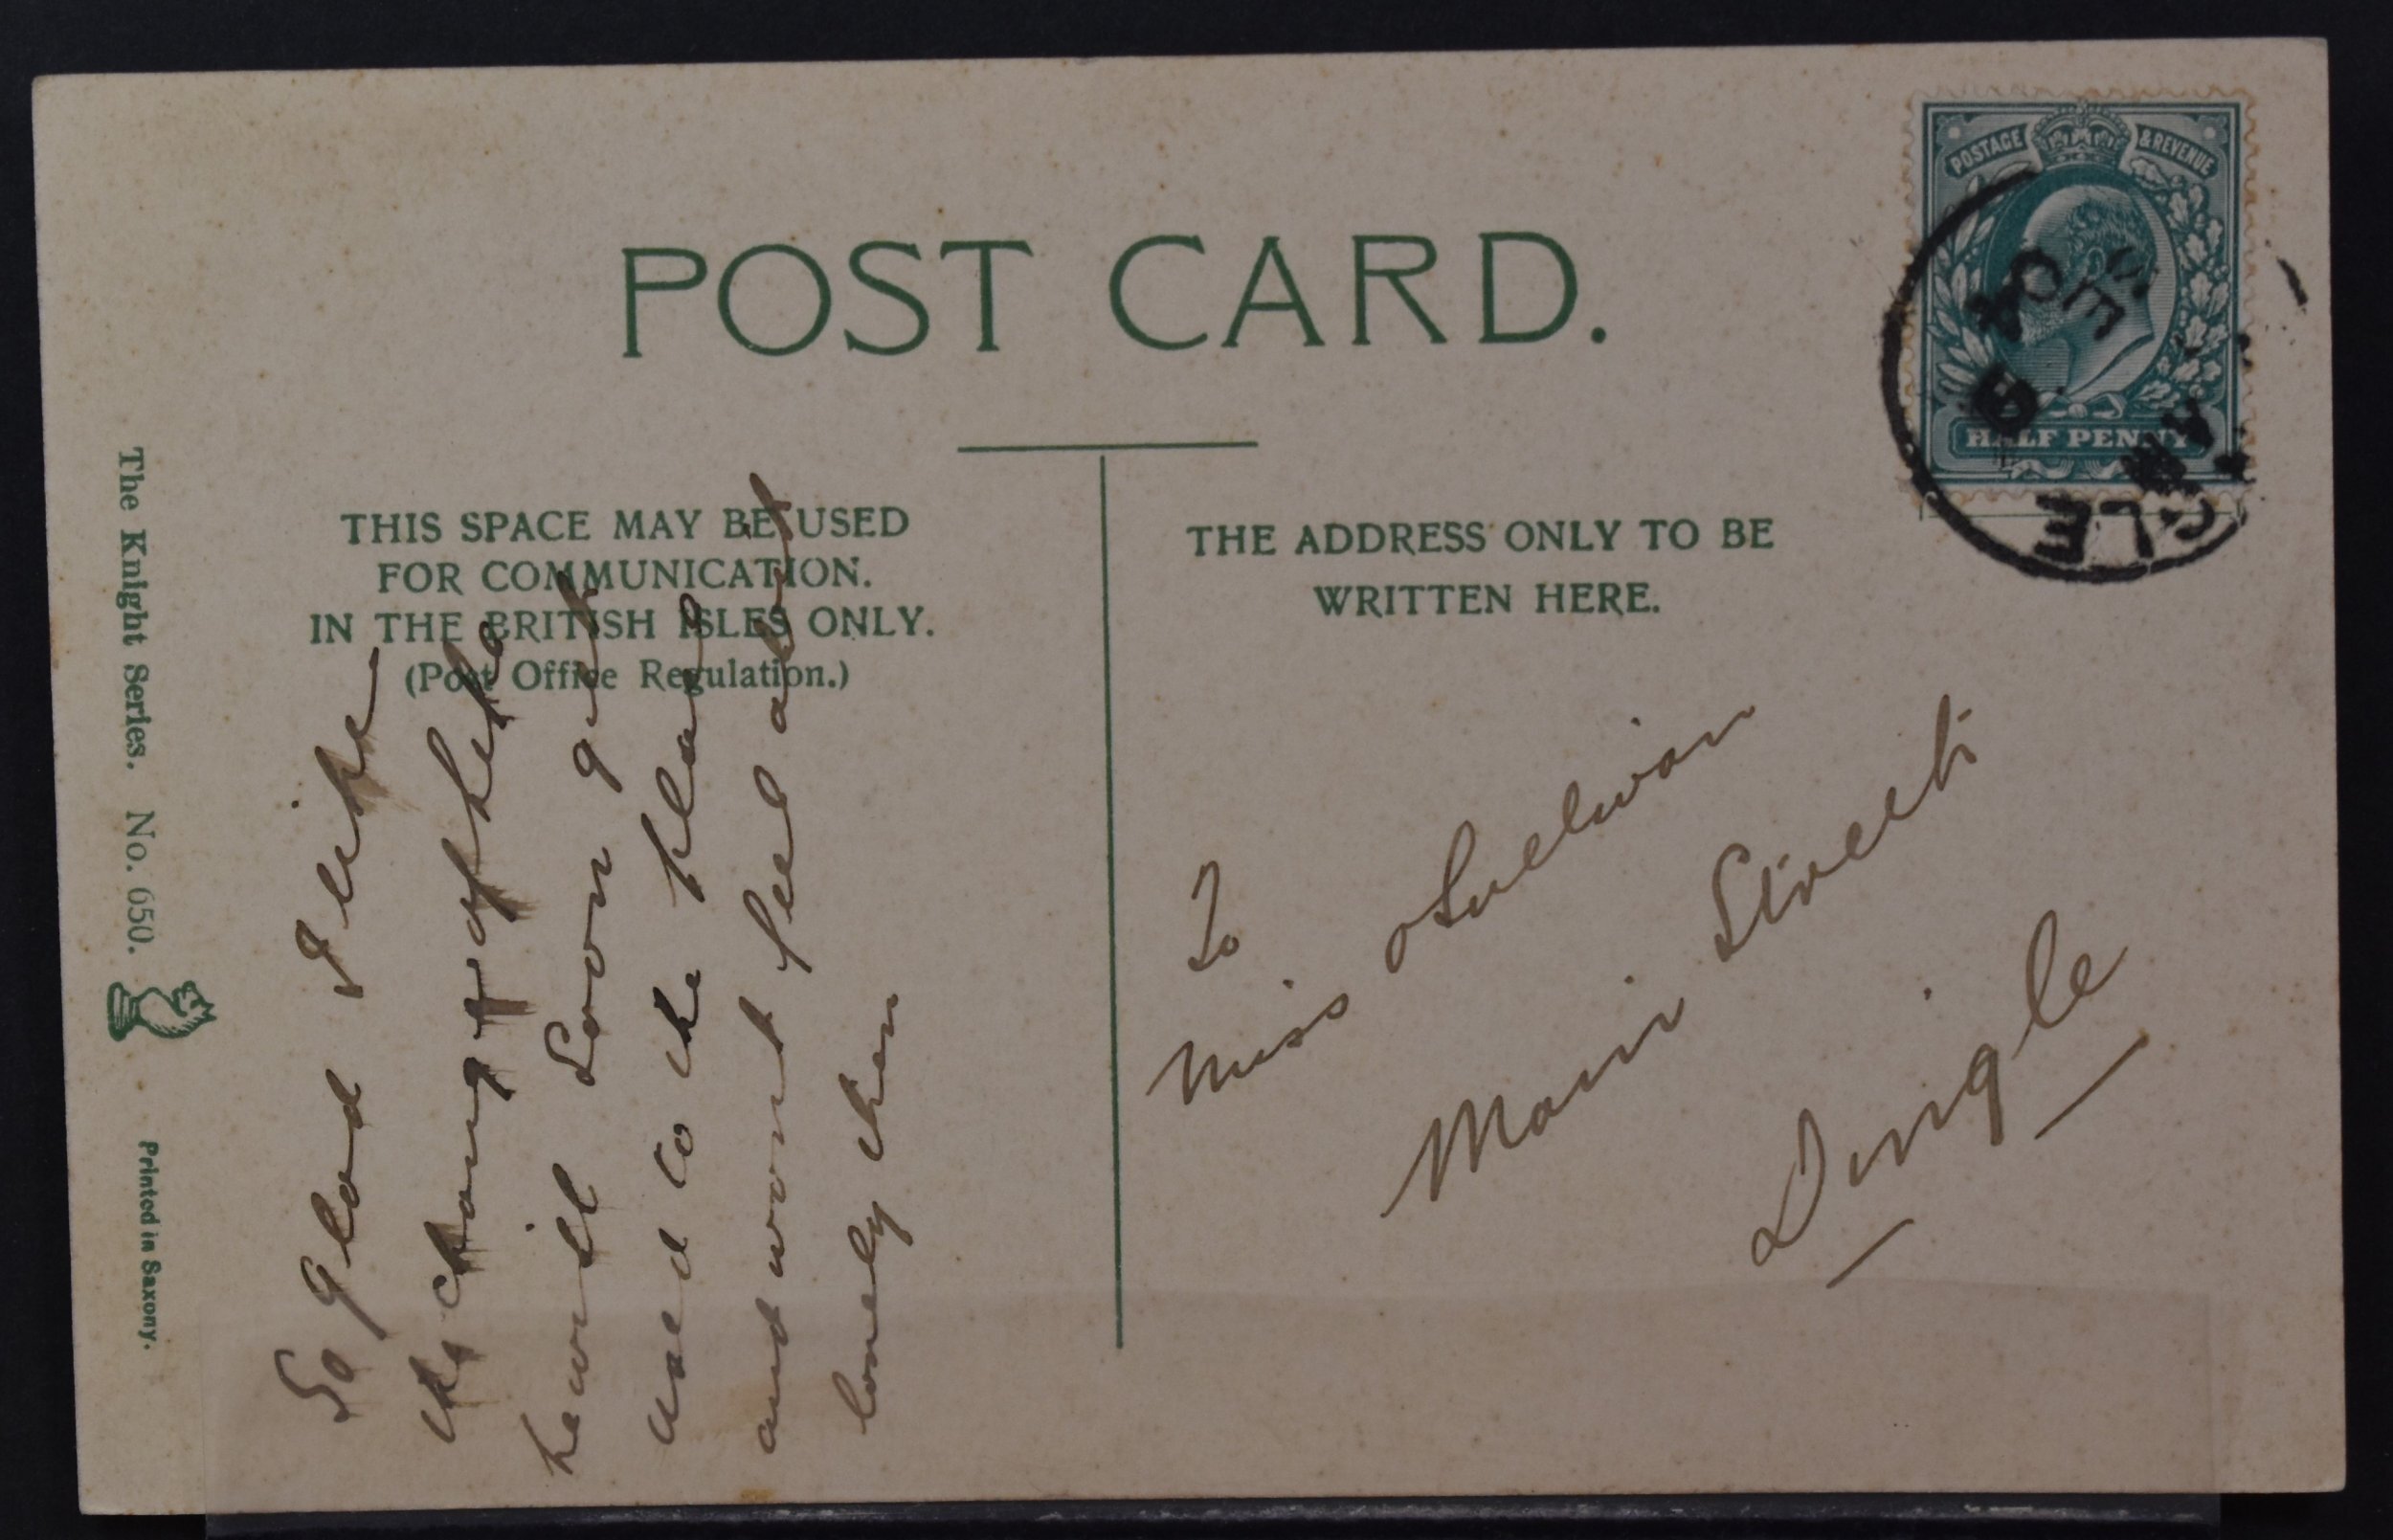 POST CARD.
THIS SPACE MAY BE USED
FOR COMMUNICATION.
IN THE BRITISH ISLES ONLY.
(Post Office Regulation.)
THE ADDRESS ONLY TO BE
WRITTEN HERE.
The Knight Series. No. 650.
Printed in Saxony.
POSTAGE & REVENUE
HALF PENNY
So glad I like
the change of
he will soon get
used to the place
and wont feel a bit
lonely then
To
Miss oSullivan
Main Street
Dingle